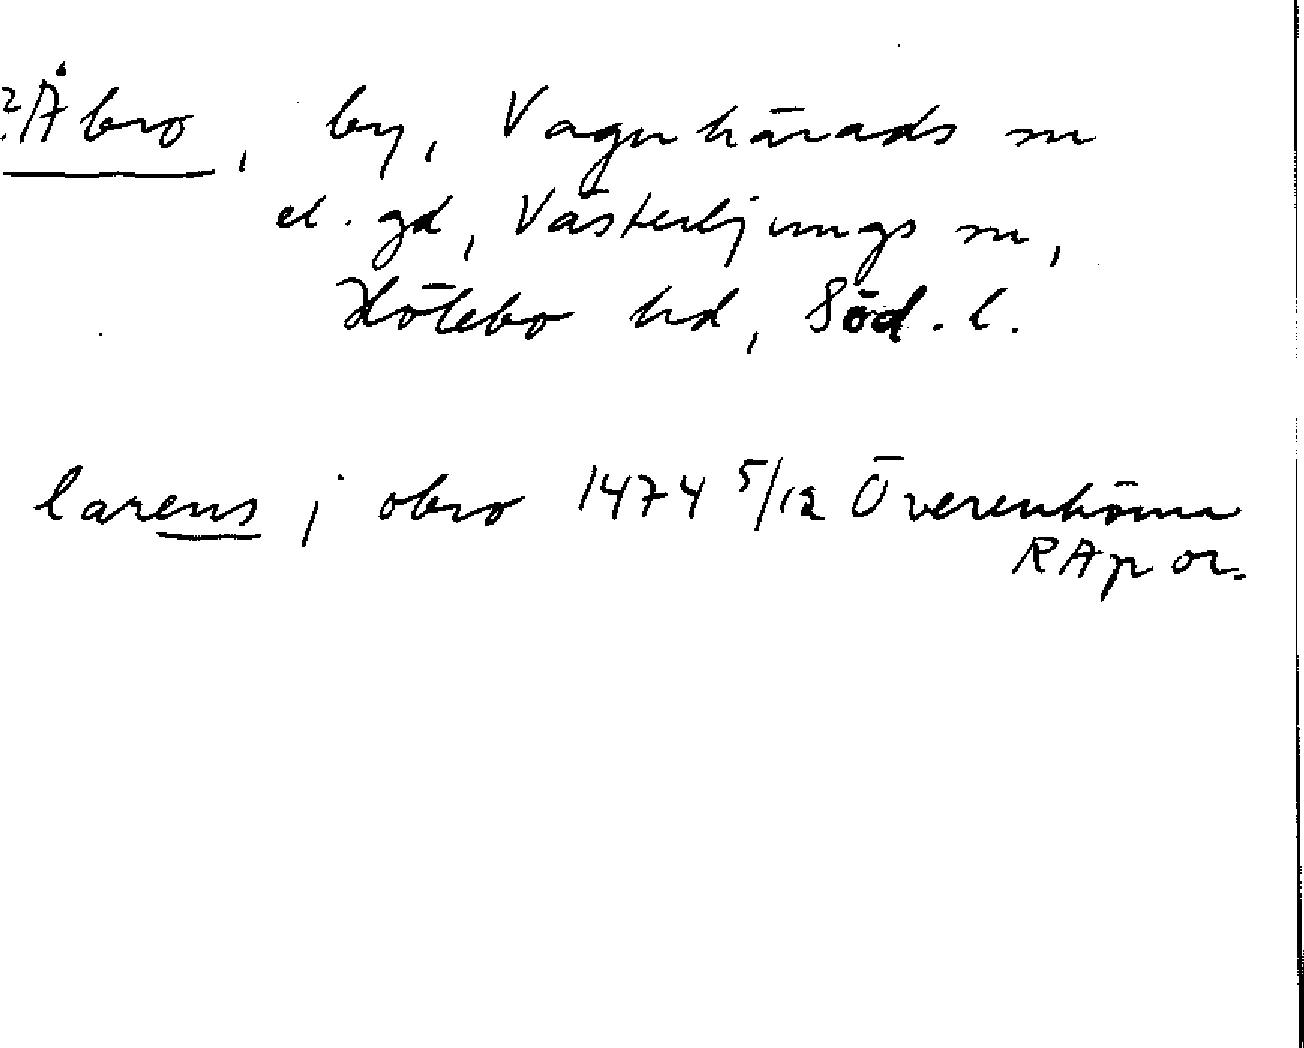 ?Åbro, by, Vagnhärads sn
el. gd, Västerljungs sn,
Hölebo hd, Söd. l.
larens j obro 1474 5/12 Överenhörna
RAp or.